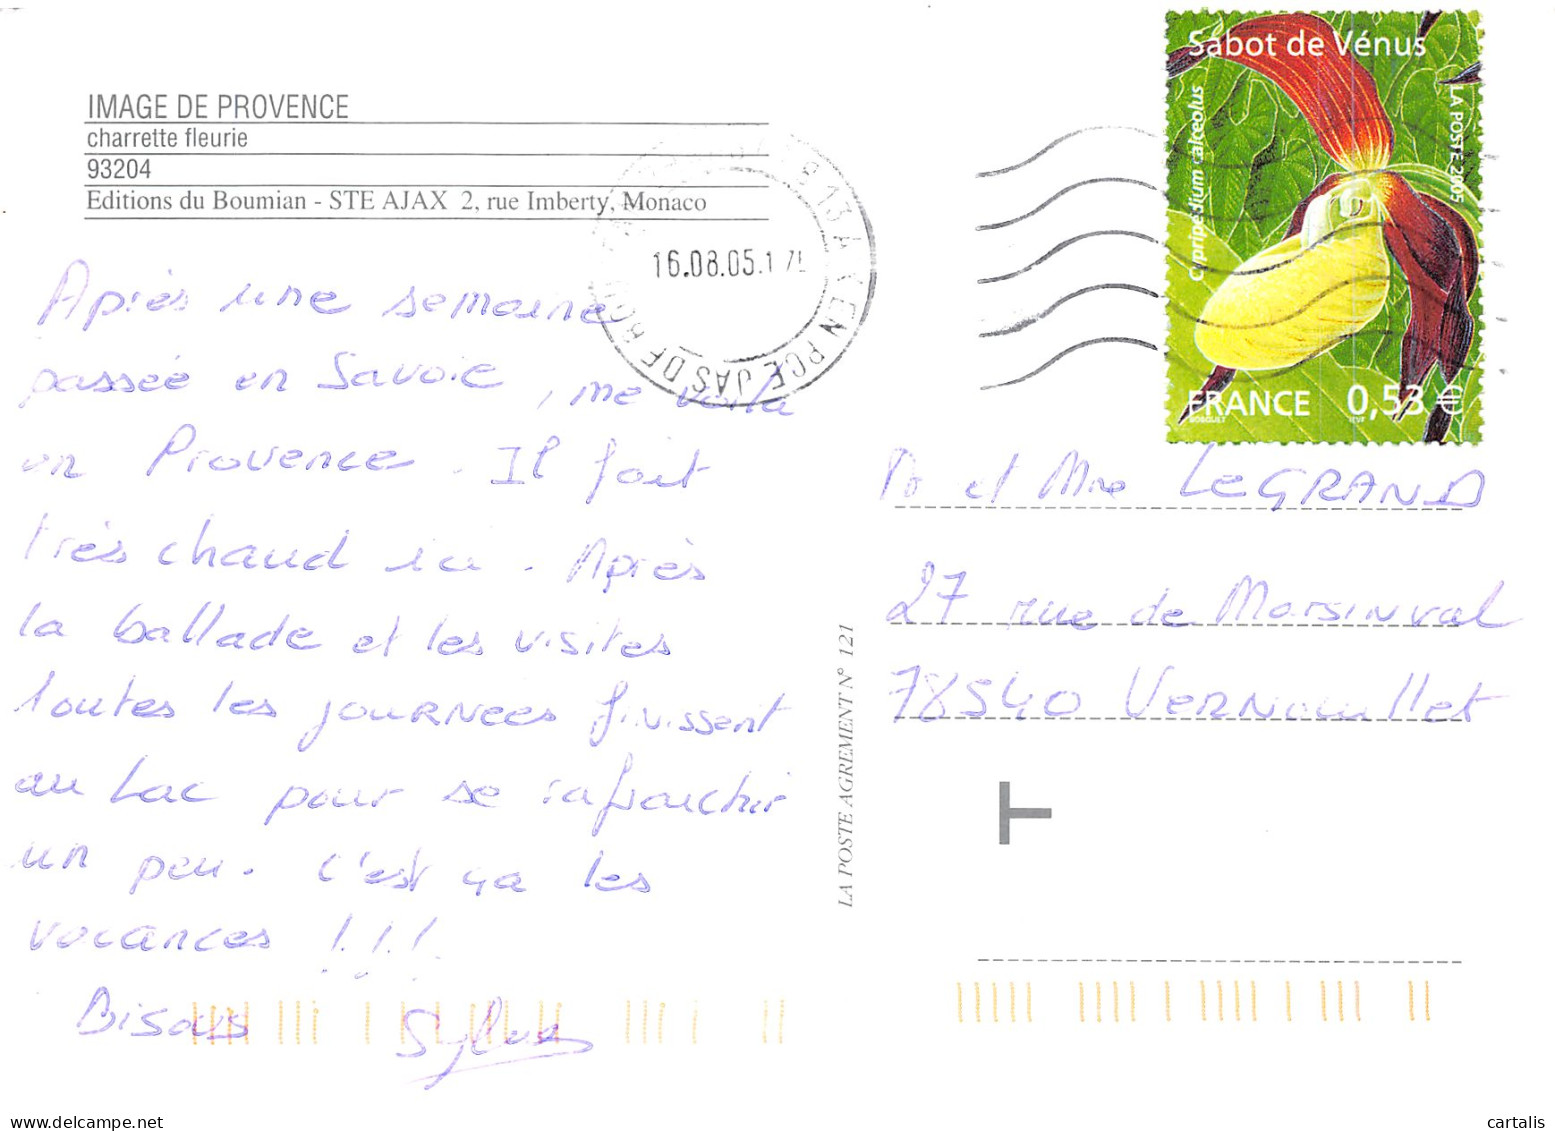 IMAGE DE PROVENCE
charrette fleurie
93204
Editions du Boumian - STE AJAX 2, rue Imberty, Monaco
16.08.05
13 AIX EN PCE JAS DE
Après une semaine
passée en Savoie, me voila
en Provence. Il fait
très chaud ici. Après
la ballade et les visites
toutes les journees finissent
au Lac pour se rafraichir
un peu. C'est ça les
vacances !!!
Bisous
Sabot de Vénus
Cypripedium calceolus
LA POSTE 2005
FRANCE 0,53 €
Mr et Mme LeGRAND
27 rue de Marsinval
78540 Vernouillet
LA POSTE AGREMENT N° 121
T
cartalis